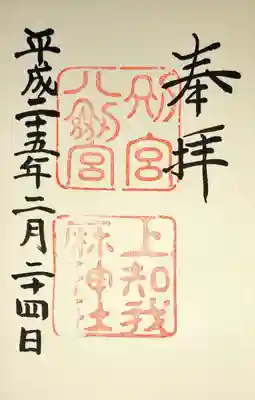 奉拝
別宮
八剣宮
上知我
麻神社
平成二十五年二月二十四日